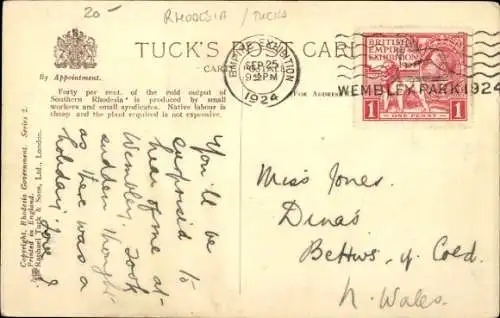 20-
RHODESIA / TUCKS
TUCK'S POST CARD
CARTE POSTALE
By Appointment.
Forty per cent. of the gold output of
Southern Rhodesia is produced by small
workers and small syndicates. Native labour is
cheap and the plant required is not expensive.
FOR ADDRESS
EMPIRE EXHIBITION
SEP 25
9 PM
1924
WEMBLEY PARK 1924
BRITISH
EMPIRE
EXHIBITION
1924
1 ONE PENNY 1
Copyright, Rhodesia Government. Series 2.
Printed in England.
Raphael Tuck & Sons, Ltd., London.
You'll be
surprised to
hear of me at
Wembley. Took
sudden thought
as there was a
holiday. Love
Miss Jones.
Dinas
Bettws-y-Coed.
N. Wales.